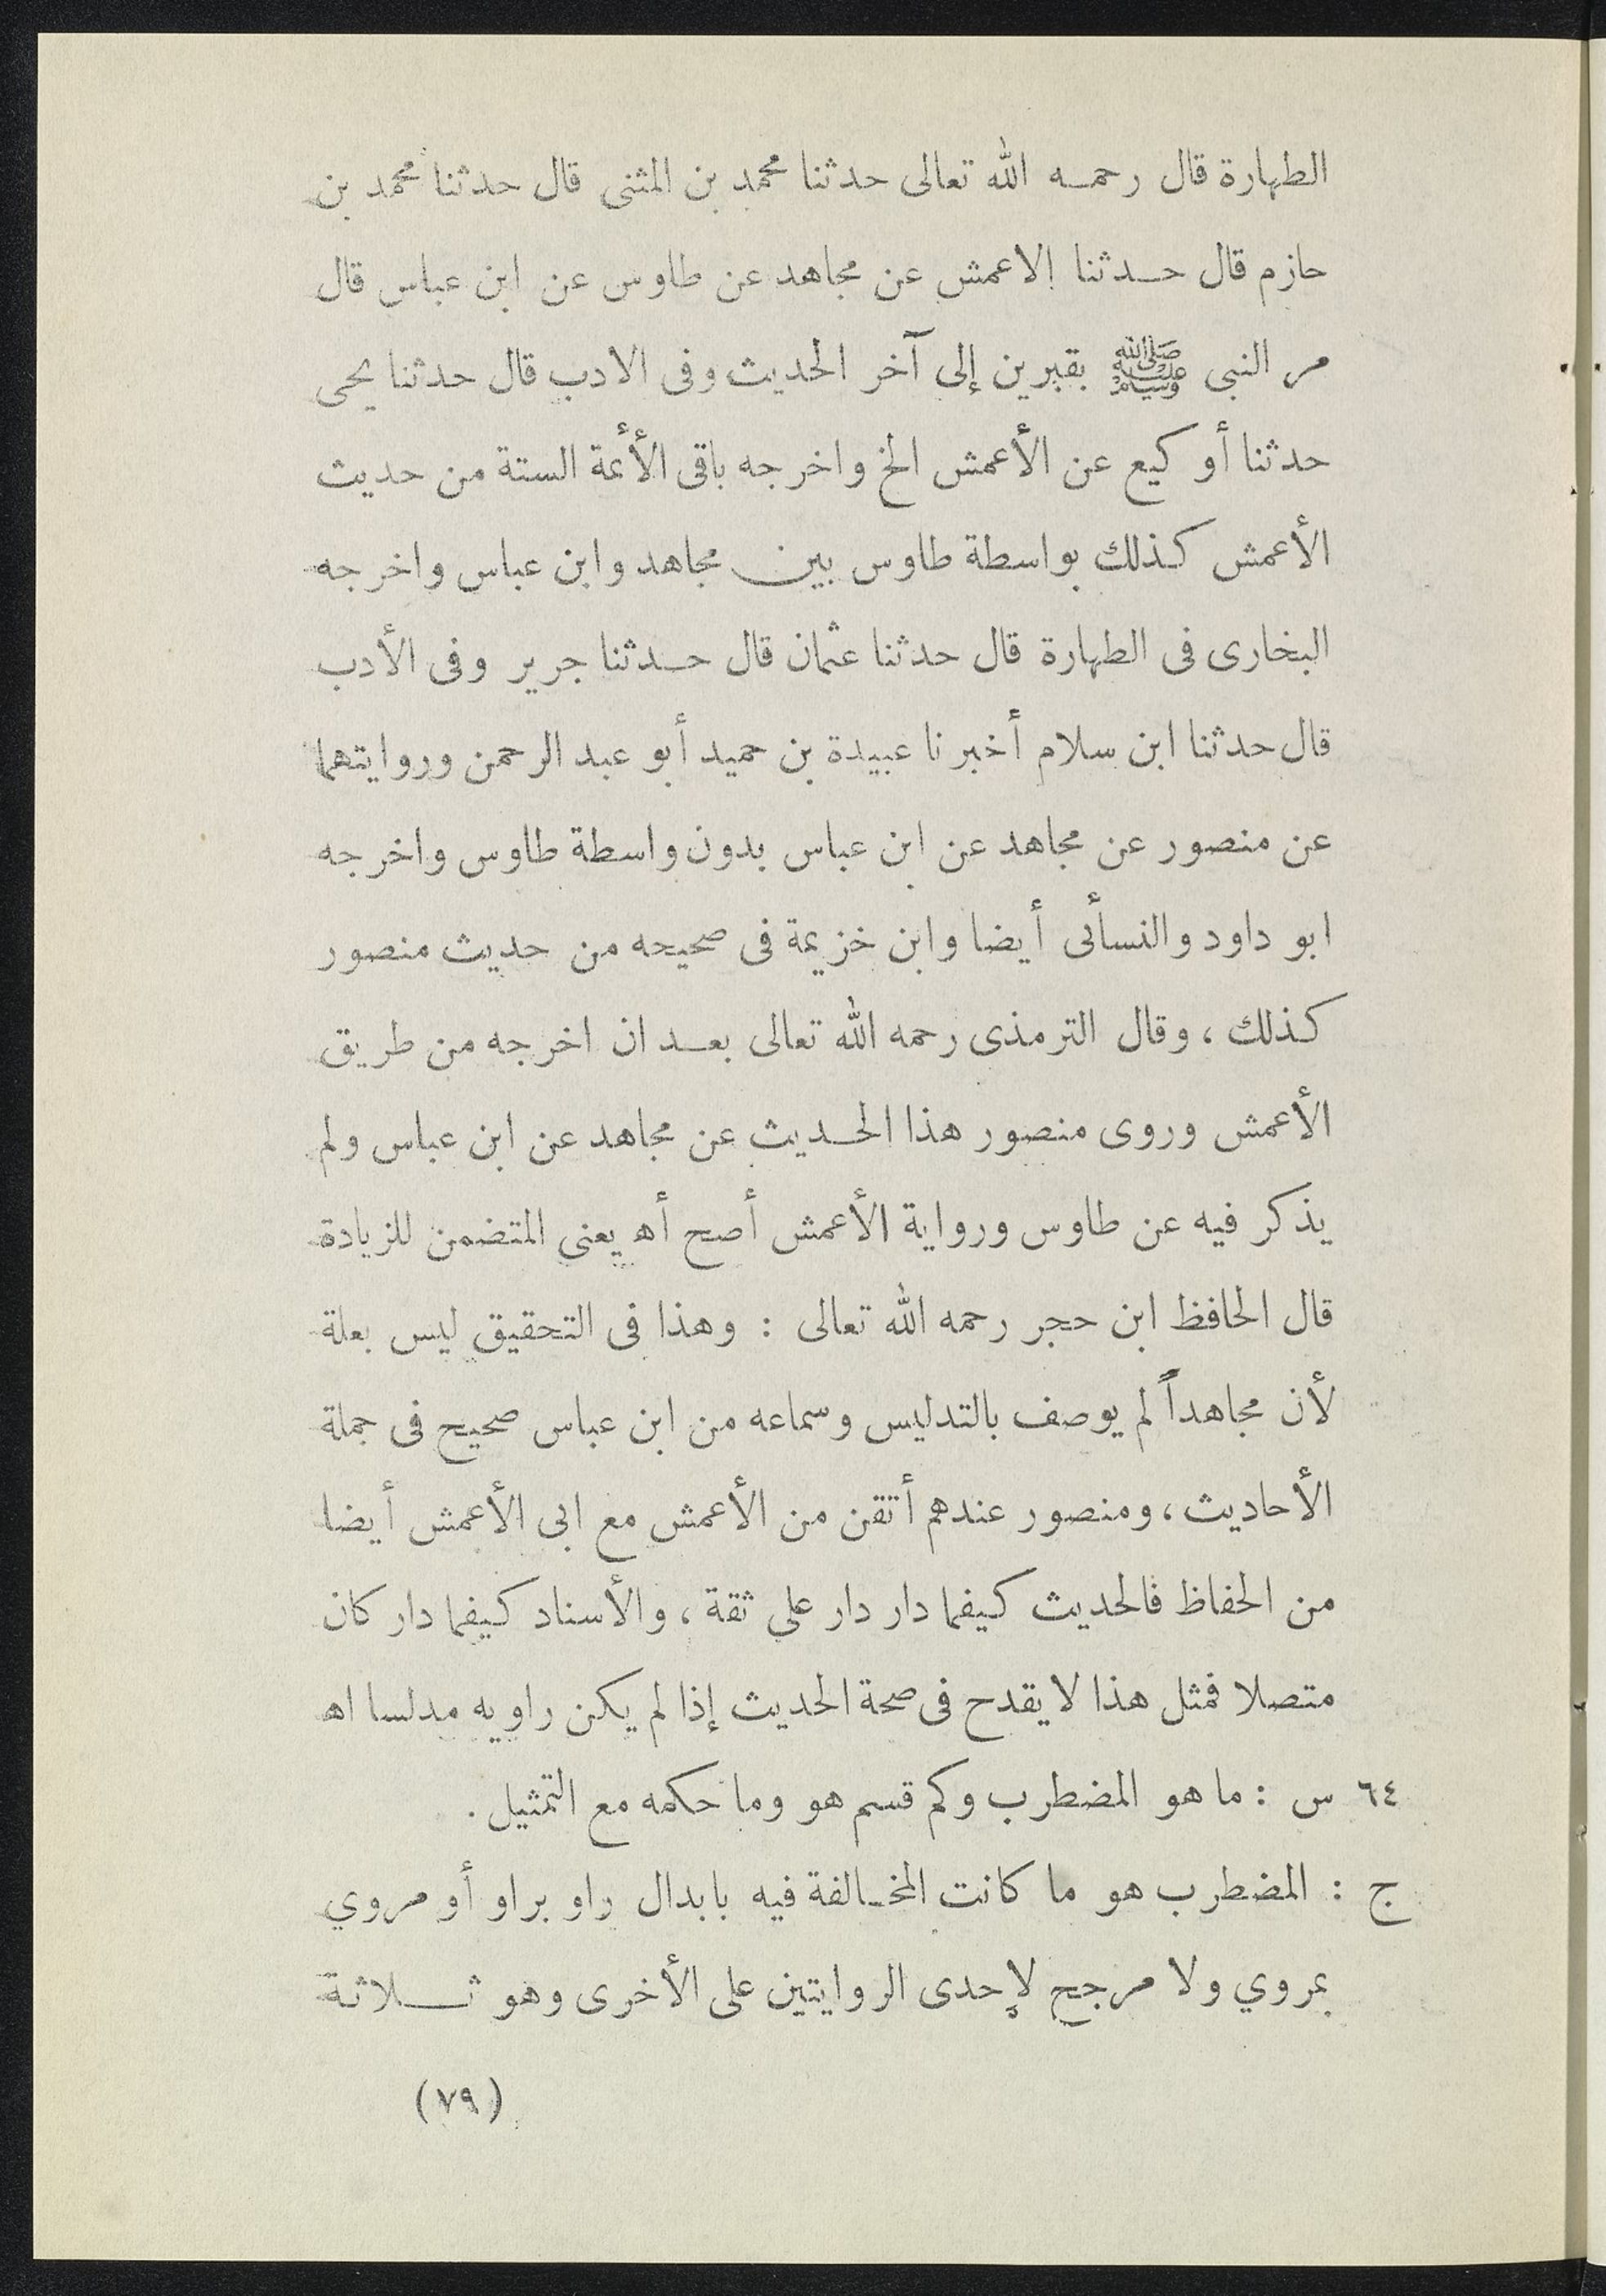 الطهارة قال رحمه الله تعالى حدثنا محمد بن المثنى قال حدثنا محمد بن
حازم قال حدثنا الاعمش عن مجاهد عن طاوس عن ابن عباس قال
مر النبى ﷺ بقبرين إلى آخر الحديث وفى الادب قال حدثنا يحيى
حدثنا أو كيع عن الأعمش الخ واخرجه باقى الأئمة الستة من حديث
الأعمش كذلك بواسطة طاوس بين مجاهد وابن عباس واخرجه
البخارى فى الطهارة قال حدثنا عثمان قال حدثنا جرير وفى الأدب
قال حدثنا ابن سلام أخبرنا عبيدة بن حميد أبو عبد الرحمن وروايتهما
عن منصور عن مجاهد عن ابن عباس بدون واسطة طاوس واخرجه
ابو داود والنسأئى أيضا وابن خزيمة فى صحيحه من حديث منصور
كذلك ، وقال الترمذى رحمه الله تعالى بعد ان اخرجه من طريق
الأعمش وروى منصور هذا الحديث عن مجاهد عن ابن عباس ولم
يذكر فيه عن طاوس ورواية الأعمش أصح أه يعنى المتضمن للزيادة
قال الحافظ ابن حجر رحمه الله تعالى : وهذا فى التحقيق ليس بعلة
لأن مجاهداً لم يوصف بالتدليس وسماعه من ابن عباس صحيح فى جملة
الأحاديث ، ومنصور عندهم أتقن من الأعمش مع ابى الأعمش أيضا
من الحفاظ فالحديث كيفما دار دار على ثقة ، والأسناد كيفما دار كان
متصلا فمثل هذا لا يقدح فى صحة الحديث إذا لم يكن راويه مدلسا اه
٦٤ س : ما هو المضطرب وكم قسم هو وما حكمه مع التمثيل .
ج : المضطرب هو ما كانت المخالفة فيه بابدال راو براو أو مروي
بمروي ولا مرجح لإحدى الروايتين على الأخرى وهو ثلاثة
(٧٩)